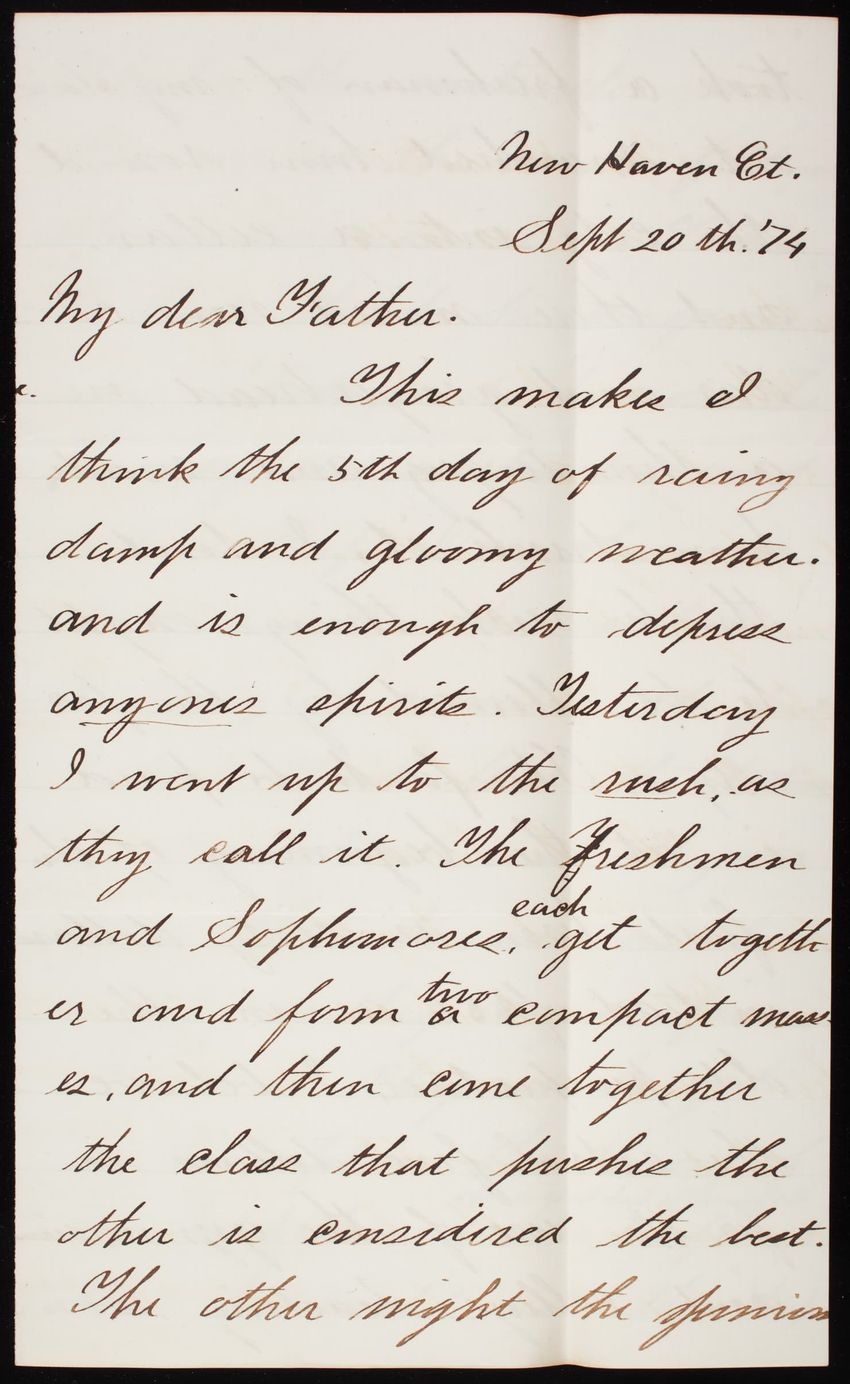 New Haven Ct.
Sept 20 th. '74
My dear Father.
This makes I
think the 5th day of rainy
damp and gloomy weather.
and is enough to depress
anyones spirits. Yesterday
I went up to the rush, as
they call it. The Freshmen
each
and Sophomores, get togeth
two
er and form a compact mass
es, and then come together
the class that pushes the
other is considered the best.
The other night the